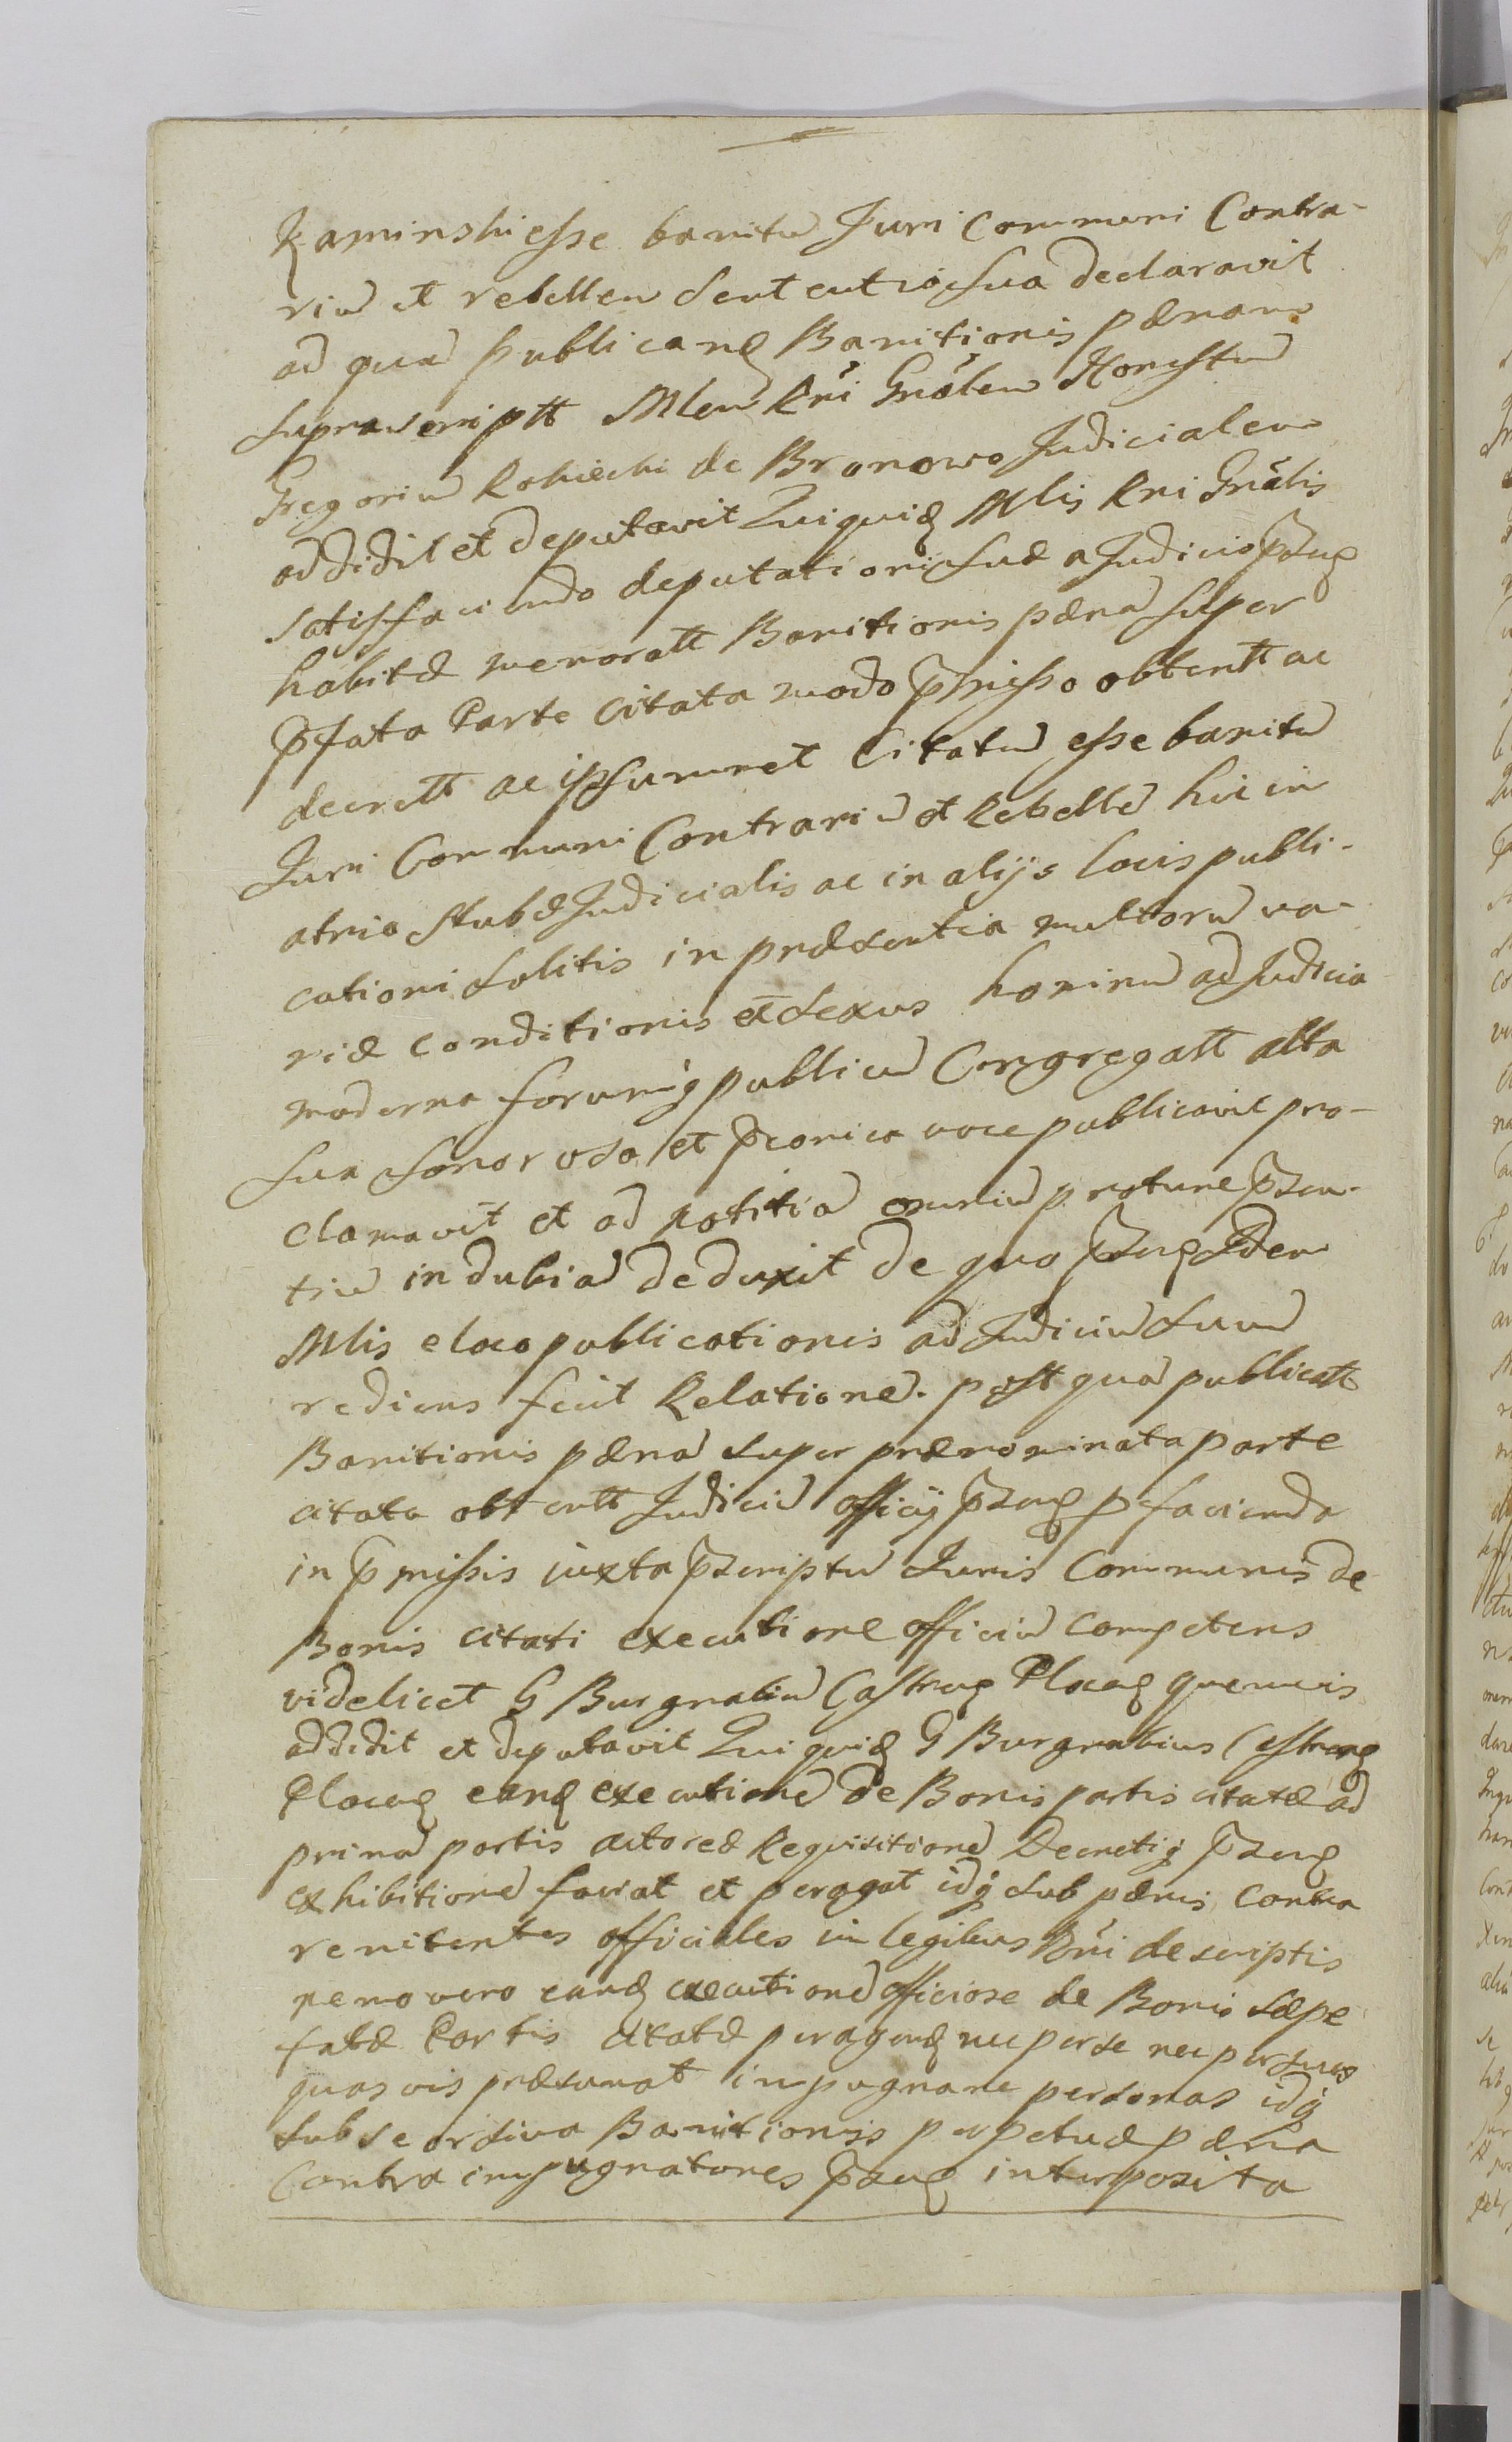 Kaminski esse banitũ Juri Communi Contra-
riũ et rebellem Sententia sua declaravit
ad quã publicanđ Banitionis pænam
suprascriptt Mlem Rñi Gñalem Honestũ
Gregoriũ Rokicki de Bronowo Judicialem
addidit et deputavit Quiquiđ Mlis Rni Gnãlis
satisfaciendo deputationi suæ a Judicio p̃zng
habitæ memoratt Banitionis pænã super
p̃fata Parte Citata modo p̃misso obtentt ac
decrett ac ipsummet Citatũ esse banitũ
Juri Communi Contrariũ et Rebellẽ hic in
atrio Stubæ Judicialis ac in alijs locis publi-
cationi solitis in præsentia multorũ va-
riæ conditionis et sexus hominũ ad Judicia
moderna forumq̃ publicũ Congregatt alta
sua sonorosa et p̃conica voce publicavit pro-
clamavit et ad notitiã omniũ prature p̃zen-
tiũ indubiã deduxit de quo p̃zng Idem
Mlis e loco publicationis ad Judiciũ suũ
rediens fecit Relationẽ. post quã publicatt
Banitionis pænã super prænominata parte
citata obtentt Judiciũ officij p̃zng p faciendo
in p̃missis iuxta p̃zcriptũ Juris Communis de
Bonis citati executione officiũ competens
videlicet G Burgrabiũ Castreng Plocen quemvis
addidit et deputavit Quiquiđ G Burgrabius Castreng
Ploceng eanđ executionẽ de Bonis partis citatæ ad
primã partis actoreæ Requisitionẽ Decretiq̃ p̃zng
exhibitionẽ faciat et peragat idq̃ sub pænis contra
renitentes officiales in legibus Rñi descriptis
nemo vero eanđ executionẽ officiose de Bonis sæpe
fatæ Partis citatæ peragenđ nec per se nec per suas
quasvis præsumat impugnare personas idq̃
sub seorsiva Banitionis perpetuæ pæna
Contra impugnatores p̃zng interposita